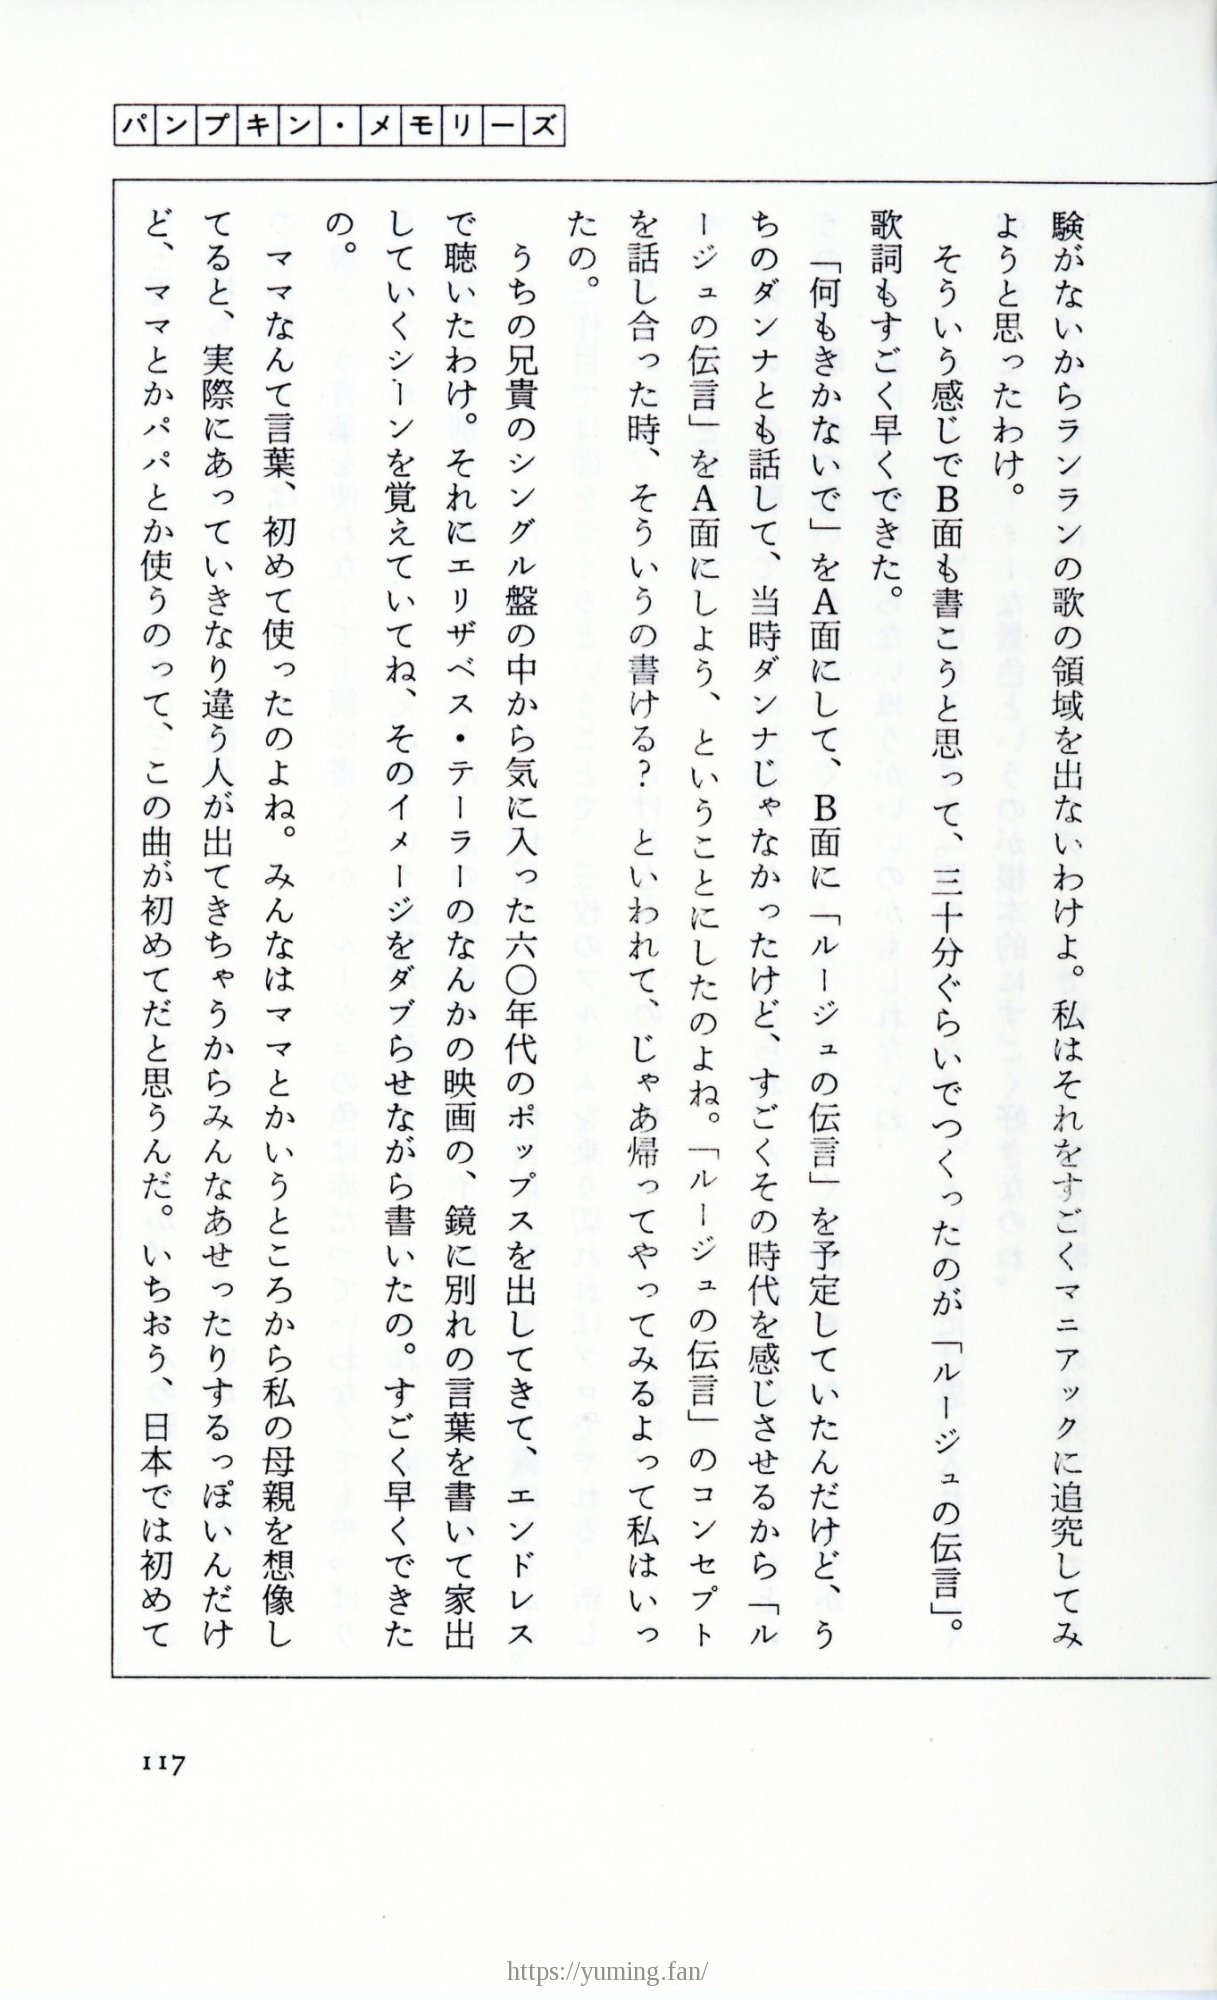 パンプキン・メモリーズ
験がないからランランの歌の領域を出ないわけよ。私はそれをすごくマニアックに追究してみ
ようと思ったわけ。
そういう感じでB面も書こうと思って、三十分ぐらいでつくったのが「ルージュの伝言」。
歌詞もすごく早くできた。
「何もきかないで」をA面にして、B面に「ルージュの伝言」を予定していたんだけど、う
ちのダンナとも話して、当時ダンナじゃなかったけど、すごくその時代を感じさせるから「ル
ージュの伝言」をA面にしよう、ということにしたのよね。「ルージュの伝言」のコンセプト
を話し合った時、そういうの書ける? といわれて、じゃあ帰ってやってみるよって私はいっ
たの。
うちの兄貴のシングル盤の中から気に入った六〇年代のポップスを出してきて、エンドレス
で聴いたわけ。それにエリザベス・テーラーのなんかの映画の、鏡に別れの言葉を書いて家出
していくシーンを覚えていてね、そのイメージをダブらせながら書いたの。すごく早くできた
の。
ママなんて言葉、初めて使ったのよね。みんなはママとかいうところから私の母親を想像し
てると、実際にあっていきなり違う人が出てきちゃうからみんなあせったりするっぽいんだけ
ど、ママとかパパとか使うのって、この曲が初めてだと思うんだ。いちおう、日本では初めて
117
https://yuming.fan/